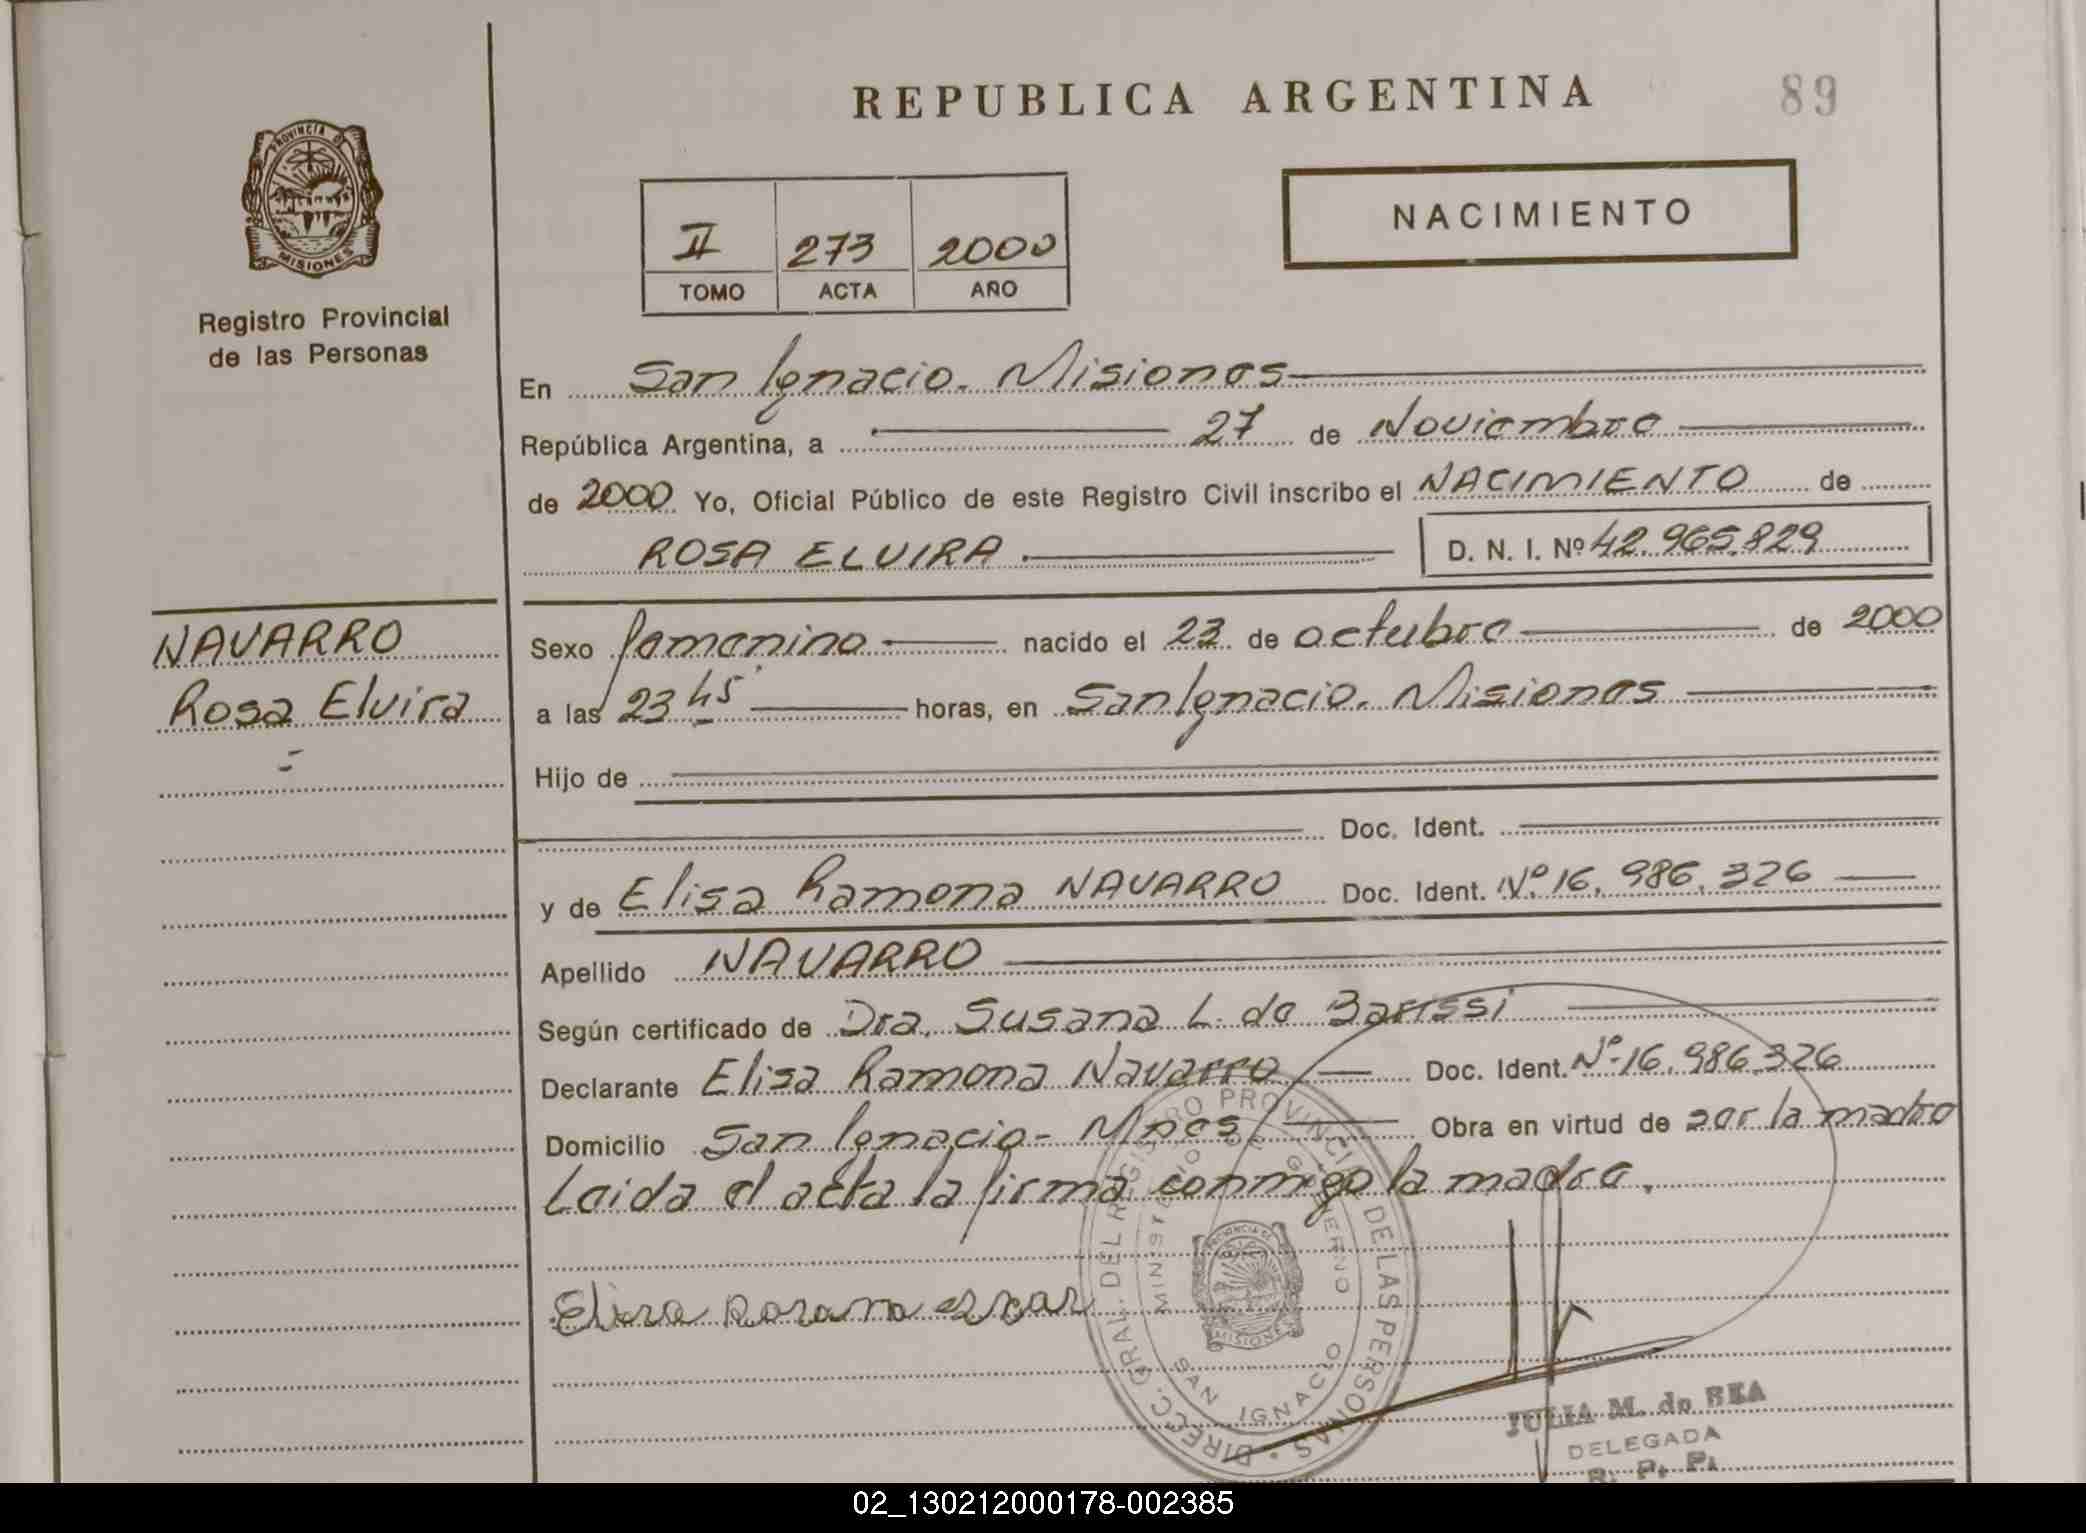 REPUBLICA ARGENTINA
89
PROVINCIA DE
MISIONES
Registro Provincial
de las Personas
II 273 2000
TOMO ACTA AÑO
NACIMIENTO
En San Ignacio. Misiones
República Argentina, a 27 de Noviembre
de 2000 Yo, Oficial Público de este Registro Civil inscribo el NACIMIENTO de
ROSA ELVIRA D. N. I. Nº 42.965.829
NAVARRO
Rosa Elvira
Sexo femenino nacido el 23 de octubre de 2000
a las 23 45 horas, en San Ignacio. Misiones
Hijo de
Doc. Ident.
y de Elisa Ramona NAVARRO Doc. Ident. Nº 16.986.326
Apellido NAVARRO
Según certificado de Dra. Susana L. de
Declarante Elisa Ramona Navarro Doc. Ident. Nº 16.986.326
Domicilio San Ignacio - Mnes Obra en virtud de ser la madre
Leida el acta la firma conmigo la madre.
DIRECC. GRAL. DEL REGISTRO PROVINCIAL DE LAS PERSONAS
MINISTERIO DE GOBIERNO
SAN IGNACIO
MISIONES
JULIA M. de REA
DELEGADA
R. P. P.
02_130212000178-002385